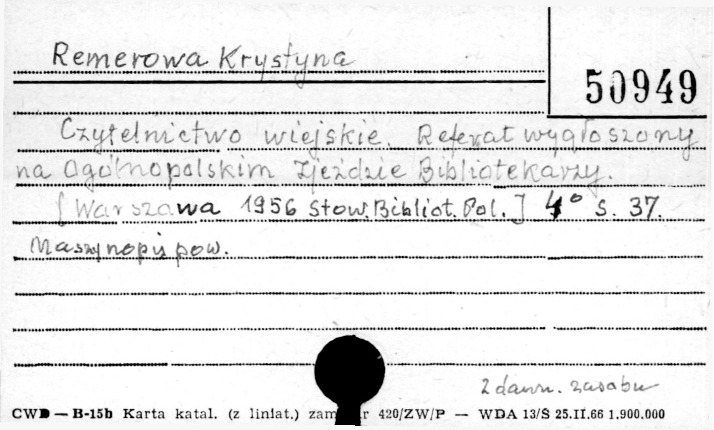 Remerowa Krystyna
50949
Czytelnictwo wiejskie. Referat wygłoszony
na Ogólnopolskim Zjeździe Bibliotekarzy.
[Warszawa 1956 Stow. Bibliot. Pol.] 4° s. 37.
Maszynopis pow.
Z dawn. zasobu
CWD — B-15b Karta katal. (z liniat.) zam r 420/ZW/P — WDA 13/S 25.II.66 1.900.000